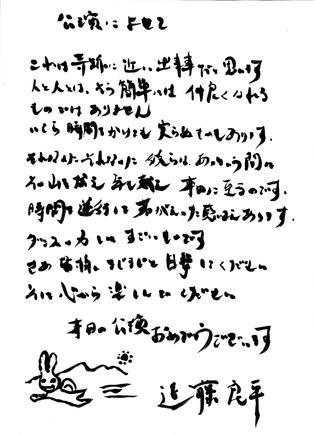 公演によせて
これは奇跡に近い出来事だと思います
人と人とは、そう簡単には仲良くなれる
ものではありません
いくら時間をかけても実らぬものもあります。
それなのに、それなのに彼らは、あっという間に
山を越え 年を越え 本日に至るのです。
時間を逆行して若がえった感さえあります。
ダンスの力とはすごいものです
さあ皆様、まじまじと目撃してください
そして心から楽しんでください
本日の公演おめでとうございます
近藤良平